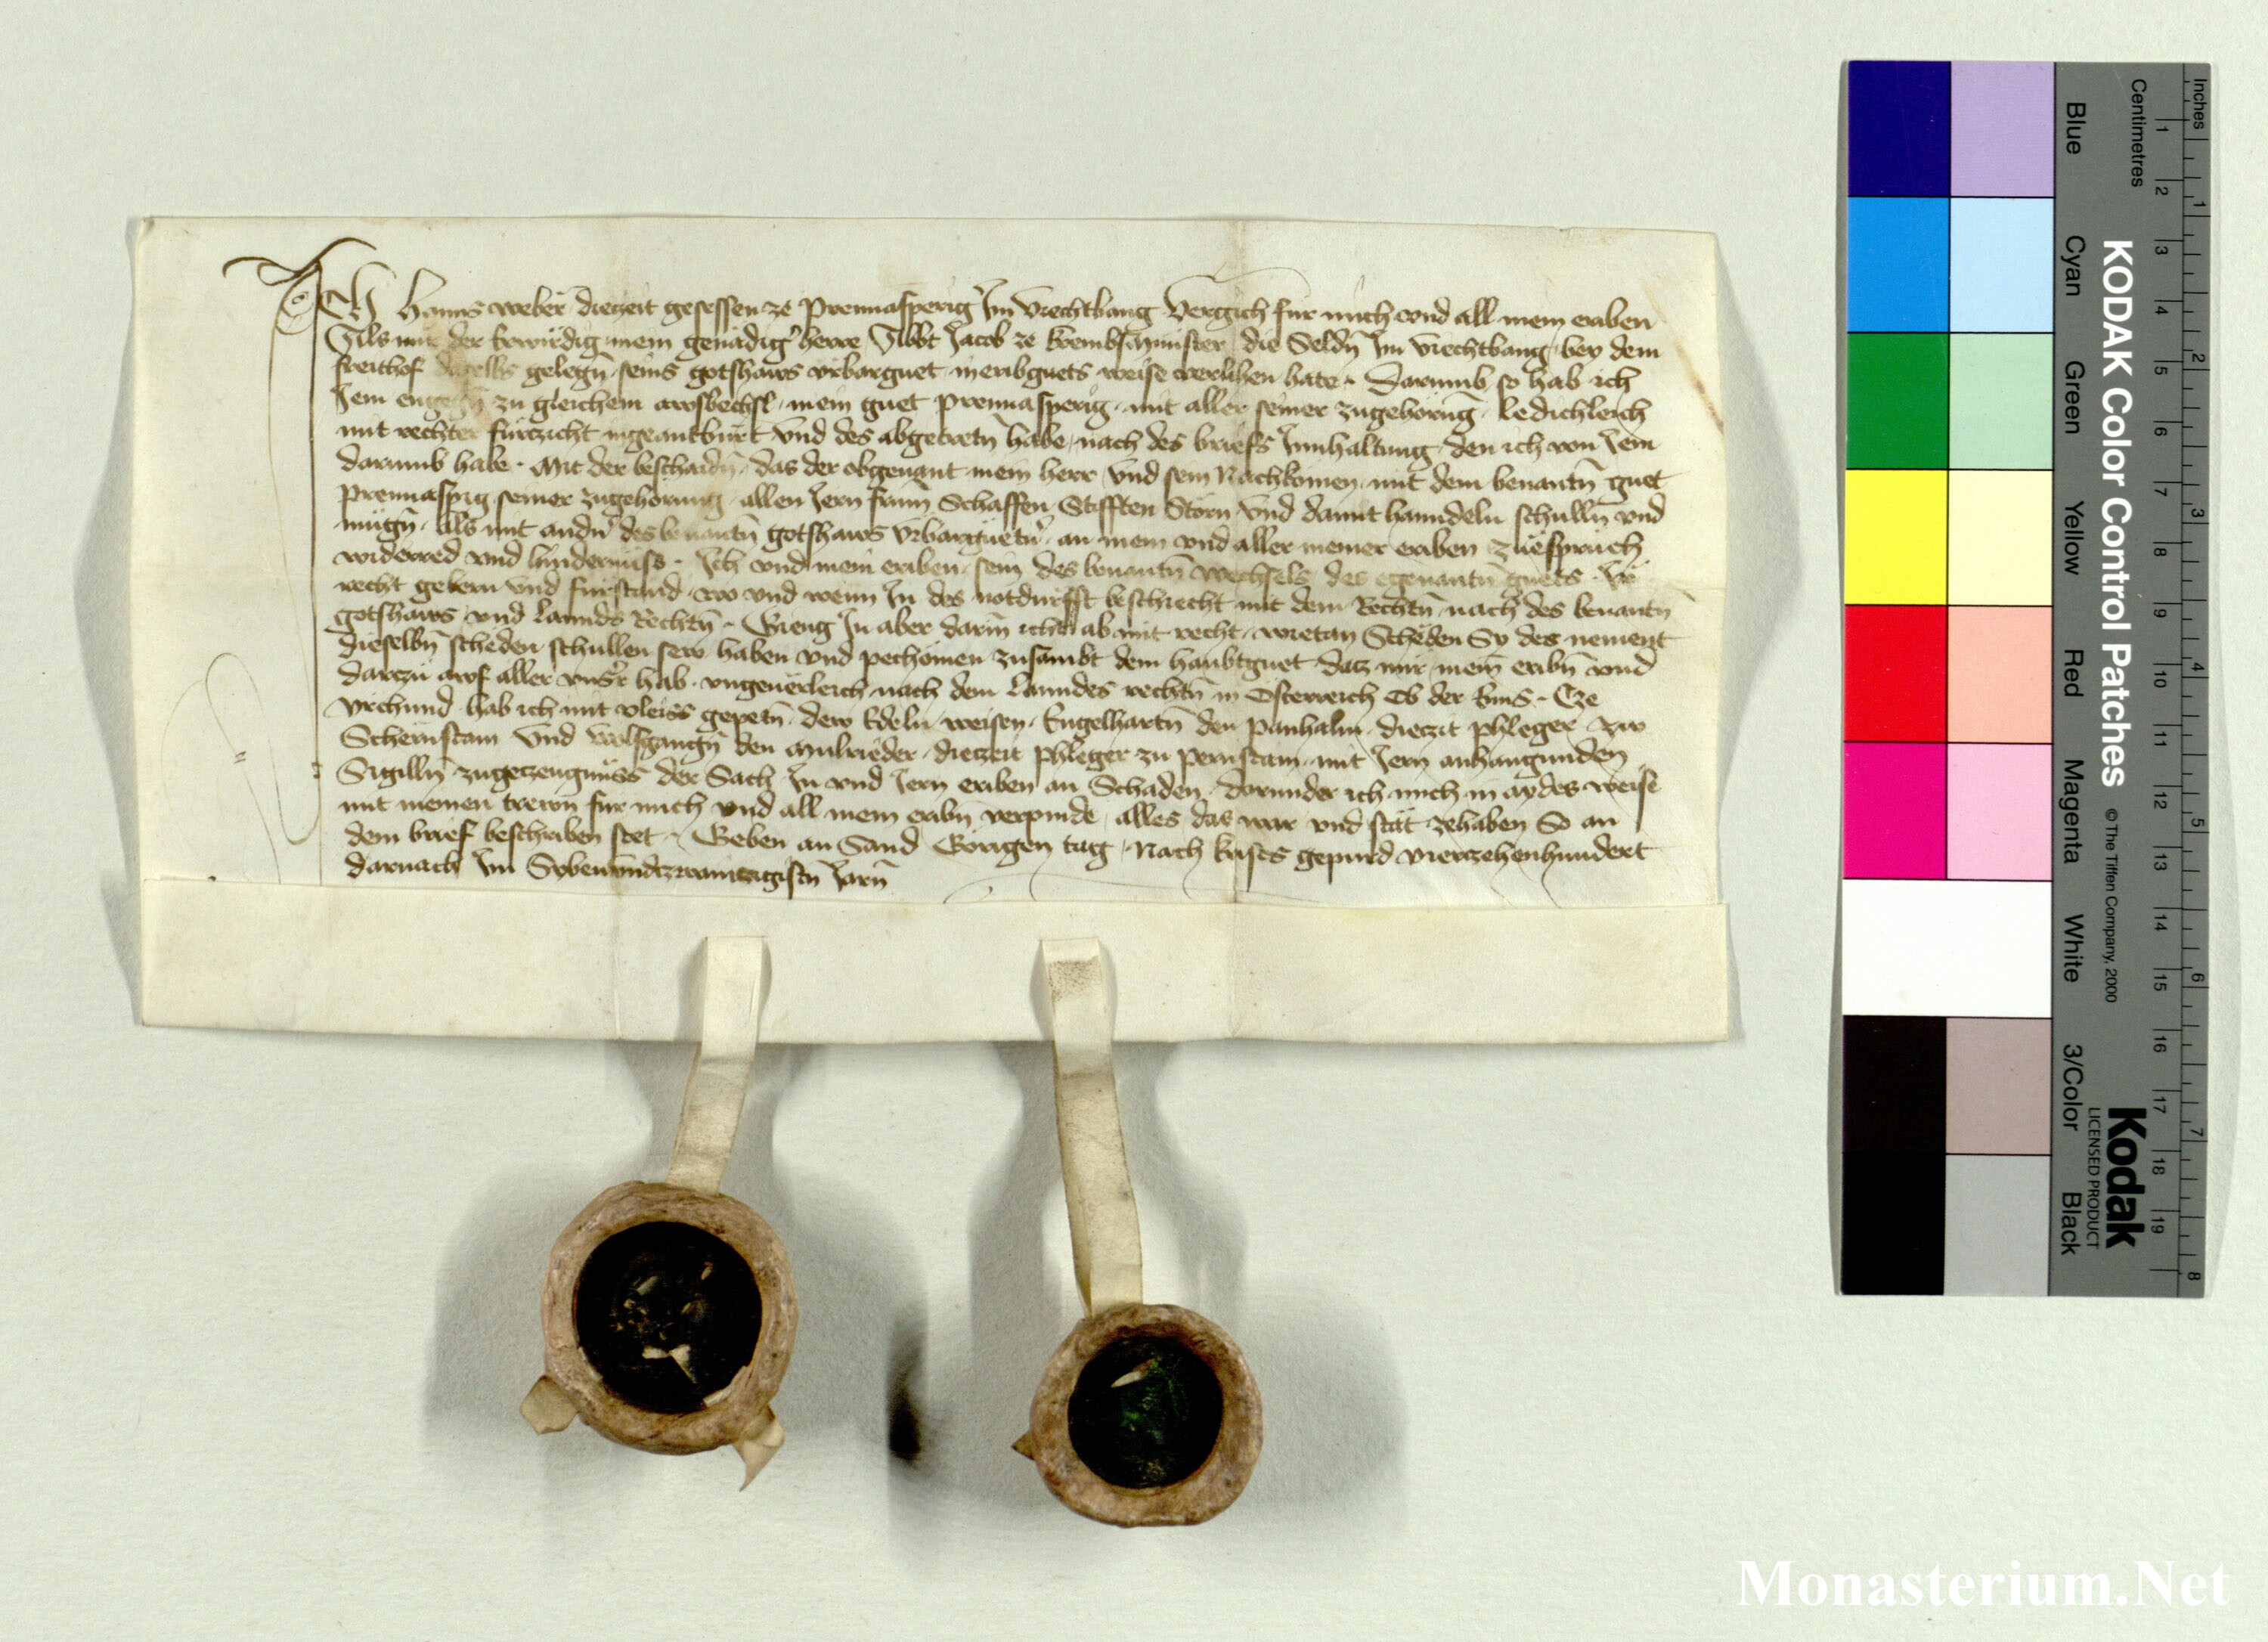 Ich Hanns weber diczeit gesessen ze Prennasperig Im viechtbang Vergich für mich vnd all mein eriben
Als mir der Erwirdig mein genädigʼ herre Abbt Jacob ze krembsmünster die Seldn̄ Im viechtbang bey dem
freithof daselbs gelegn̄ seins gotshaws vrbarguet in eribguets weise verlihen hate. Darumb so hab ich
Jem engegn̄ zu gleichem awsbechsl mein guet Prennasperig mit aller seiner zugehörūg ledichleich
mit rechter fürczicht ingeantburt vnd des abgetretn̄ habe nach des briefs Innhaltung den ich von Jem
darumb habe. Mit der beschaidn̄ das der obgenant mein herr vnd sein Nachkomen mit dem benantn̄ guet
Prennasprig seiner zugehörung allen Jern frum̄ Schaffen Stifften Störn vnd damit hanndeln schulln̄ vnd
mügn̄ als mit andnʼ des benantn̄ gotshaws vrbarguetnʼ an mein vnd aller meiner eriben zuespruch
widerred vnd hindernüss. Ich vnd mein eriben sein des benantn̄ wechsels des egenantn̄ guets Jr
recht gebern vnd fürstand wo vnd wenn In des notdurfft beschiecht mit dem Rechtn̄ nach des benantn̄
gotshaws vnd lannds Rechtn̄. Gieng In aber darin ichts ab mit recht wietan Scheden Sy des nement
dieselbn̄ scheden schullen sew haben vnd pechömen zusambt dem haubtguet datz mir mein eribn̄ vnd
darczu awf aller vnsʼr hab vngeuerleich nach dem lanndes rechtn̄ in Österreich Ob der Enns. Cze
vrchund hab ich mit vleiss gepetn̄ dew Edeln weisen Engelhartn̄ den Panhalm diczit phleger zw
Schernstain vnd wolfgangn̄ den Mulrieder diczeit phleger zu Pernstain mit Jern anhangunden
Sigilln̄ zugeczeugnüss der Sach In vnd Jern eriben an Schaden darunder ich mich in aydes weise
mit meinen trewn für mich vnd all mein eribn̄ verpinde alles das war vnd stät zehaben So an
dem brief beschriben stet. Geben an Sand Görigen tag Nach krists gepurd vierczehenhundert
darnach Im Sybenundczwainczigistn̄ Jarn̄
Inches
Centimetres
1 2 3 4 5 6 7 8
1 2 3 4 5 6 7 8 9 10 11 12 13 14 15 16 17 18 19
KODAK Color Control Patches
© The Tiffen Company, 2000
Kodak
LICENSED PRODUCT
Blue
Cyan
Green
Yellow
Red
Magenta
White
3/Color
Black
Monasterium.Net